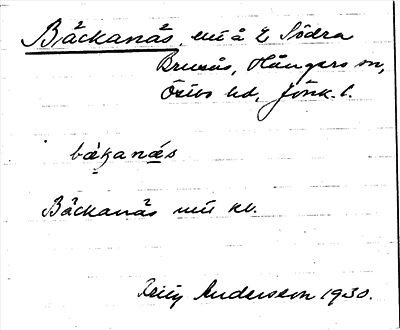 Bäckanäs, må å E Södra
Brunås, Hångers sn,
Östbo hd, Jönk. l.
bækanæs
Bäckanäs mn kl.
Andersson 1930.